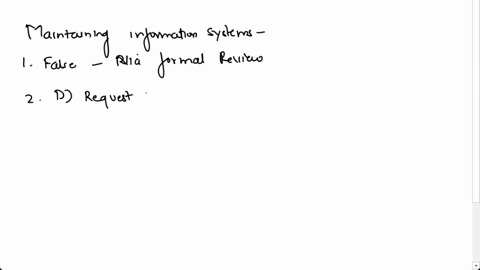 Maintaining information Systems -
1. False - Via formal Review
2. D) Request